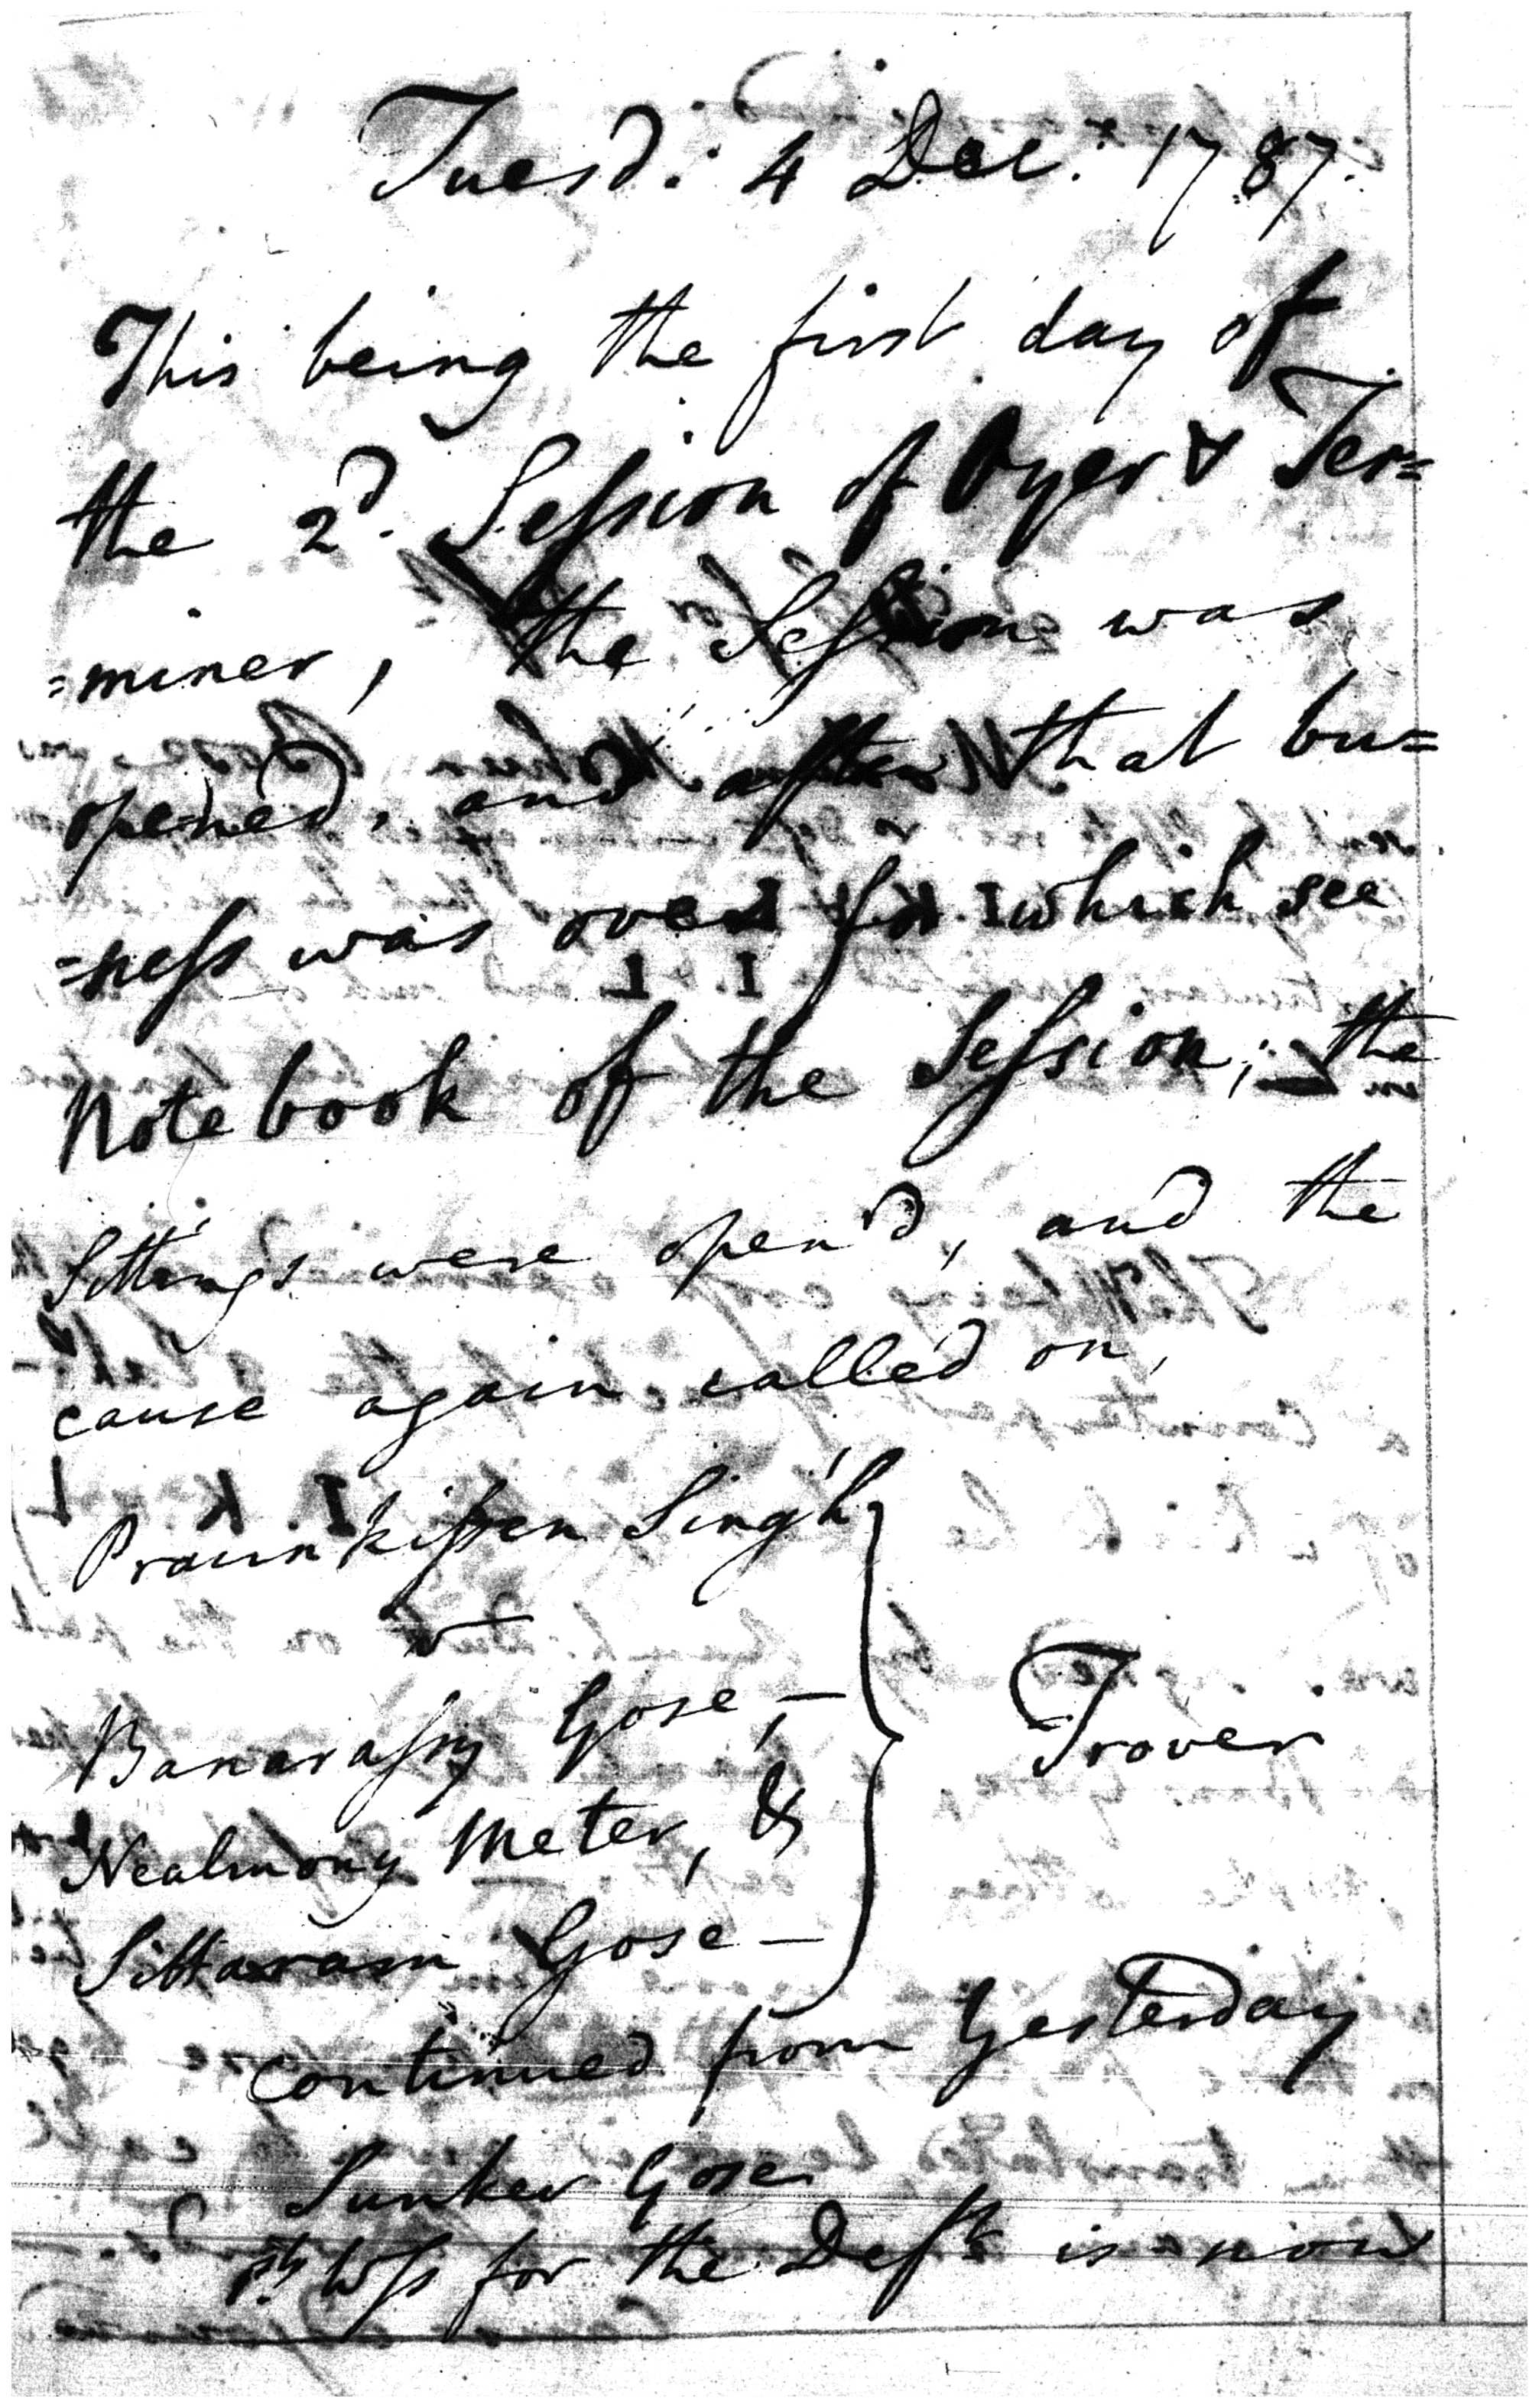 Tuesd: 4 Dec: 1787.
This being the first day of
the 2d. Session of Oyer & Ter=
=miner, the Session was
opened, and after that bu=
=ness was over for which see
Notebook of the Session; the
Sittings were open'd, and the
cause again called on,
Prawnkissen Singh
v
Banarassy Gose, —
Nealmony Meter, &
Sittaram Gose —
Trover
continued from Yesterday
Sunker Gose
Wss for the Defts is now